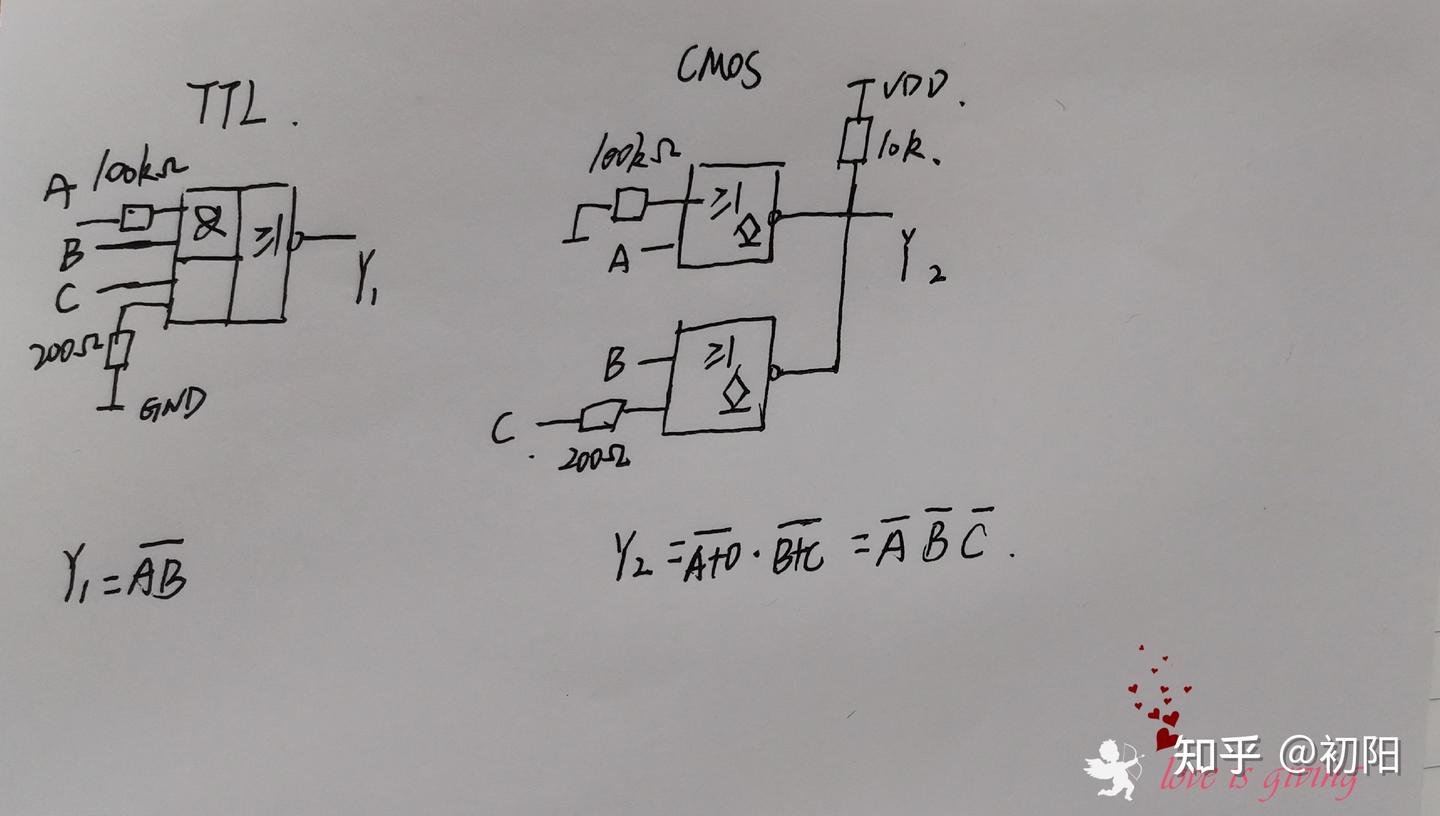 TTL.
CMOS
VDD.
10k.
A 100kΩ
B
C
200Ω
GND
&
≥1
Y₁
100kΩ
A
≥1
Y₂
B
C
200Ω
≥1
Y₁ = \overline{AB}
Y₂ = \overline{A+0} · \overline{B+C} = \overline{A} \overline{B} \overline{C}.
知乎 @初阳
love is giving